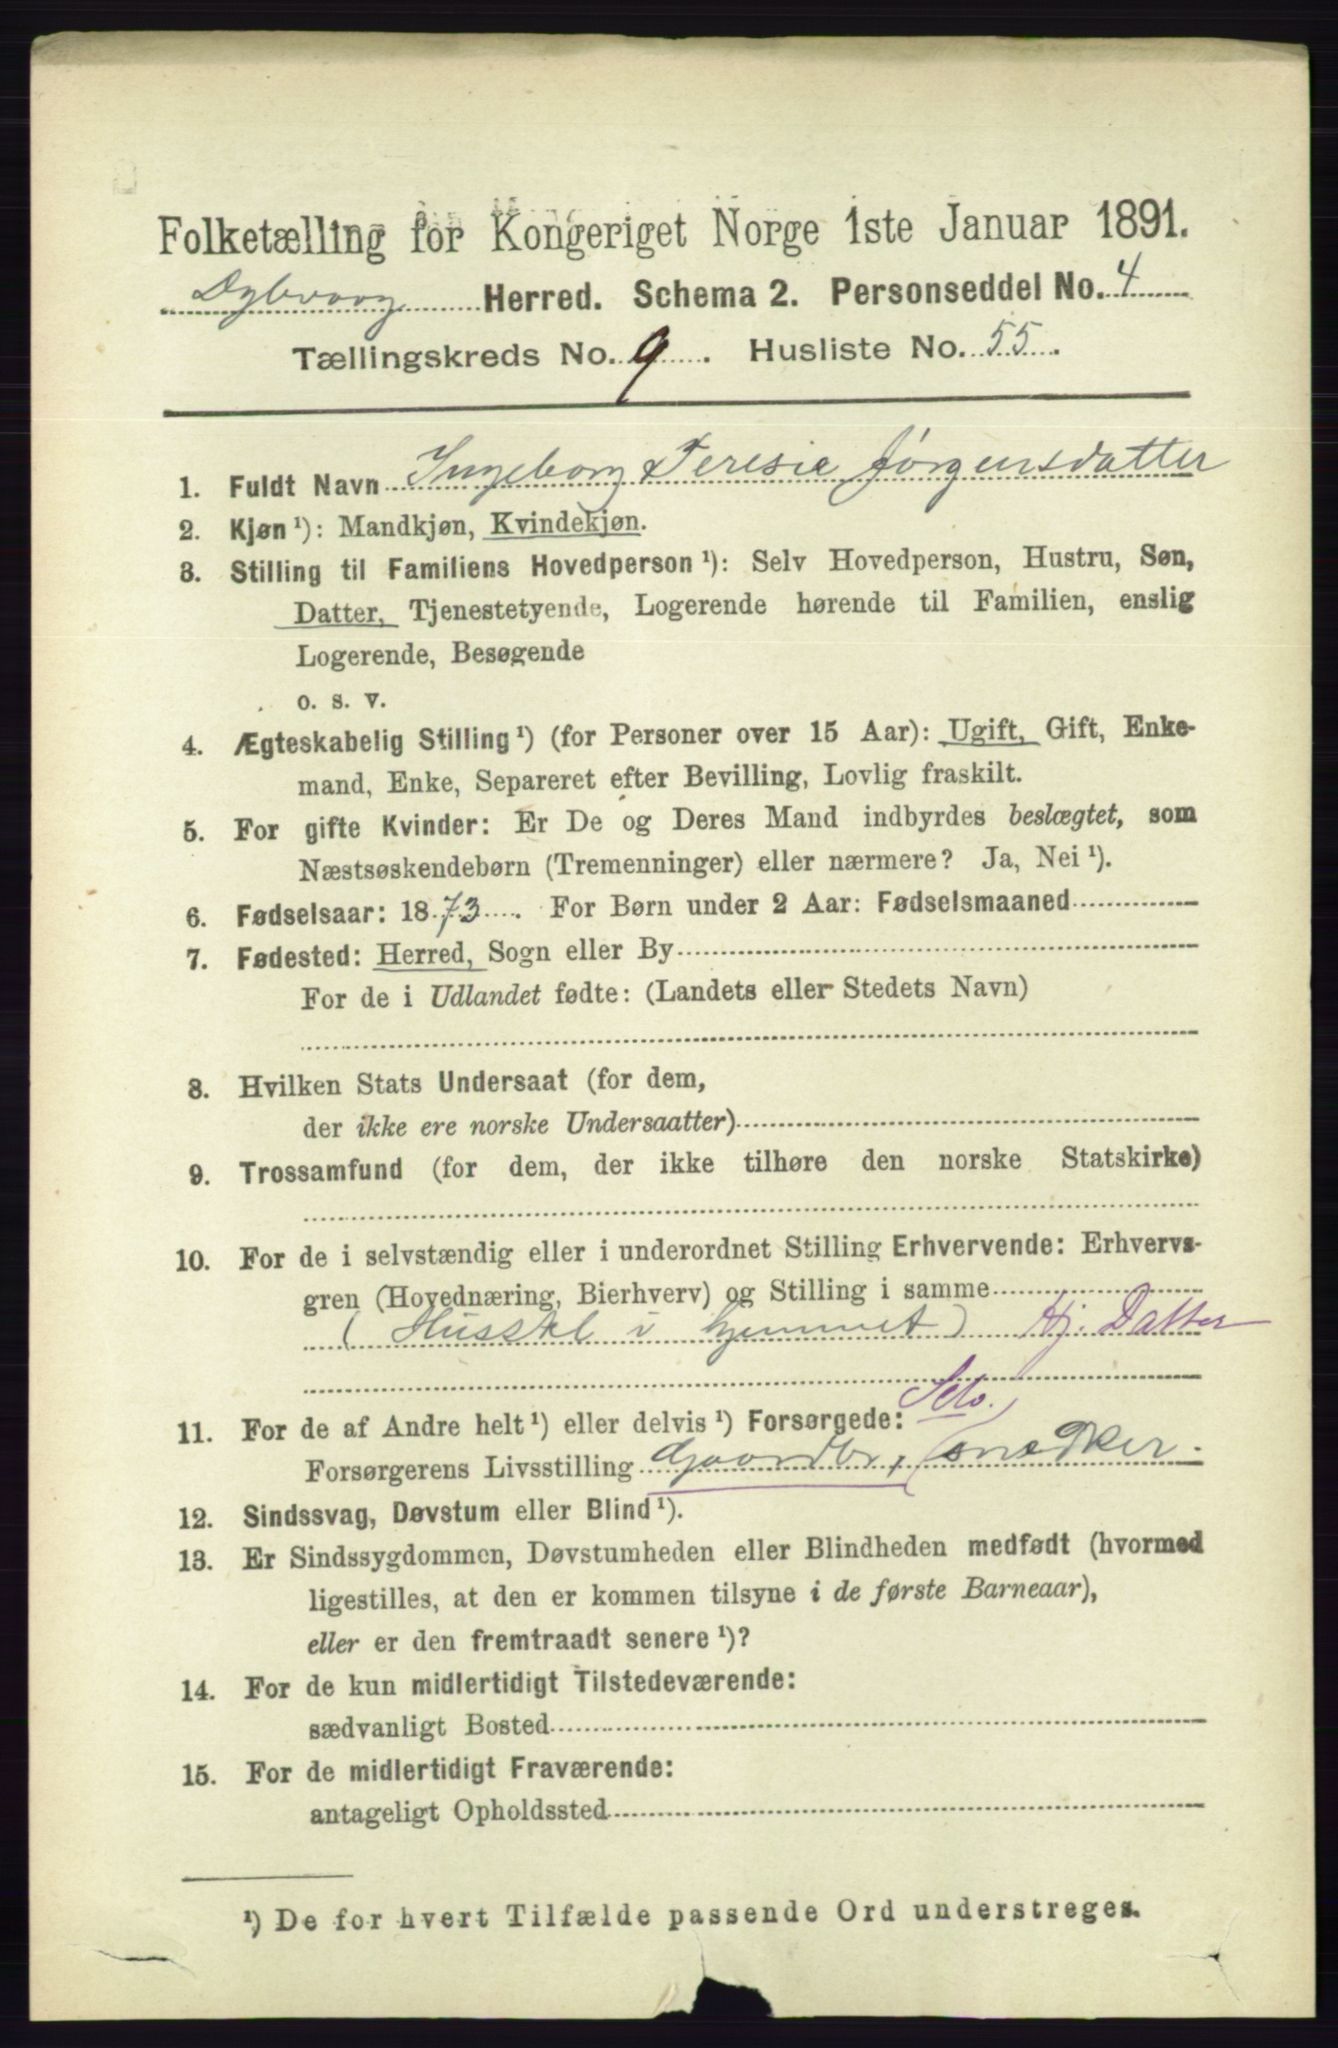 Folketælling for Kongeriget Norge 1ste Januar 1891.
Dybvaag Herred. Schema 2. Personseddel No. 4
Tællingskreds No. 9. Husliste No. 55.
1. Fuldt Navn Ingeborg Teresie Jørgensdatter
2. Kjøn ¹): Mandkjøn, Kvindekjøn.
3. Stilling til Familiens Hovedperson ¹): Selv Hovedperson, Hustru, Søn,
Datter, Tjenestetyende, Logerende hørende til Familien, enslig
Logerende, Besøgende
o. s. v.
4. Ægteskabelig Stilling ¹) (for Personer over 15 Aar): Ugift, Gift, Enke-
mand, Enke, Separeret efter Bevilling, Lovlig fraskilt.
5. For gifte Kvinder: Er De og Deres Mand indbyrdes beslægtet, som
Næstsøskendebørn (Tremenninger) eller nærmere? Ja, Nei ¹).
6. Fødselsaar: 1873. For Børn under 2 Aar: Fødselsmaaned
7. Fødested: Herred, Sogn eller By
For de i Udlandet fødte: (Landets eller Stedets Navn)
8. Hvilken Stats Undersaat (for dem,
der ikke ere norske Undersaatter)
9. Trossamfund (for dem, der ikke tilhøre den norske Statskirke)
10. For de i selvstændig eller i underordnet Stilling Erhvervende: Erhvervs-
gren (Hovednæring, Bierhverv) og Stilling i samme
(Husstel i hjemmet) Hj. Datter
Selv.
11. For de af Andre helt ¹) eller delvis ¹) Forsørgede:
Forsørgerens Livsstilling Gaardbr, snedker.
12. Sindssvag, Døvstum eller Blind ¹).
13. Er Sindssygdommen, Døvstumheden eller Blindheden medfødt (hvormed
ligestilles, at den er kommen tilsyne i de første Barneaar),
eller er den fremtraadt senere ¹)?
14. For de kun midlertidigt Tilstedeværende:
sædvanligt Bosted
15. For de midlertidigt Fraværende:
antageligt Opholdssted
¹) De for hvert Tilfælde passende Ord understreges.